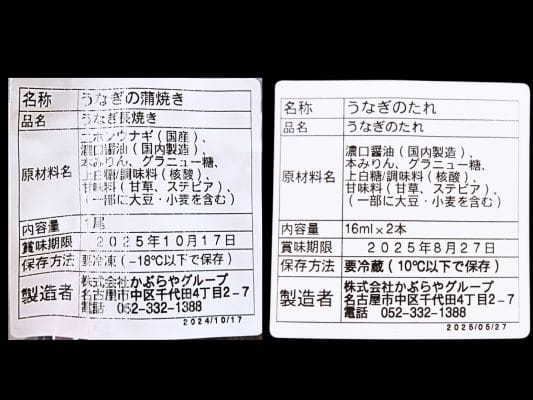 名称 うなぎの蒲焼き
品名 うなぎ長焼き
原材料名 ニホンウナギ(国産)、
濃口醤油(国内製造)、
本みりん、グラニュー糖、
上白糖/調味料(核酸)、
甘味料(甘草、ステビア)、
(一部に大豆・小麦を含む)
内容量 1尾
賞味期限 2025年10月17日
保存方法 要冷凍(-18℃以下で保存)
製造者 株式会社かぶらやグループ
名古屋市中区千代田4丁目2-7
電話 052-332-1388
2024/10/17
名称 うなぎのたれ
品名 うなぎのたれ
原材料名 濃口醤油(国内製造)、
本みりん、グラニュー糖、
上白糖/調味料(核酸)、
甘味料(甘草、ステビア)、
(一部に大豆・小麦を含む)
内容量 16ml×2本
賞味期限 2025年8月27日
保存方法 要冷蔵(10℃以下で保存)
製造者 株式会社かぶらやグループ
名古屋市中区千代田4丁目2-7
電話 052-332-1388
2025/05/27